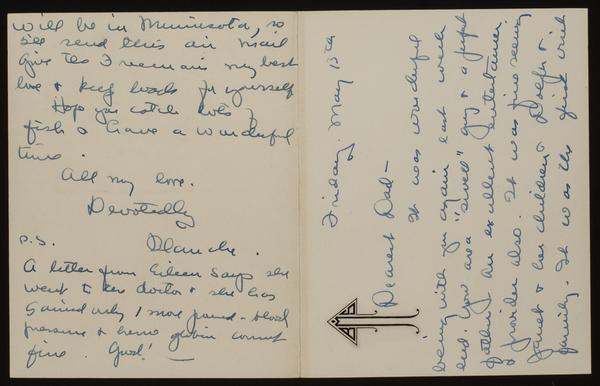 Friday, May 13th
Dearest Dad –
It was wonderful
being with you again last week
end. You are a "swell" guy & a first
father. An excellent entertainer
& provider also. It was fine seeing
Janet & her children &
family. It was the first visit
will be in Minnesota, so
I'll send this air mail
Give Theo Freeman my best
love & keep loads for yourself
Hope you catch lots of
fish & have a wonderful
time.
All my love.
Devotedly
Blanche.
P.S.
A letter from Eileen says she
went to her doctor & she has
gained only 1 more pound – blood
pressure & hemo globin count
fine. Good! —